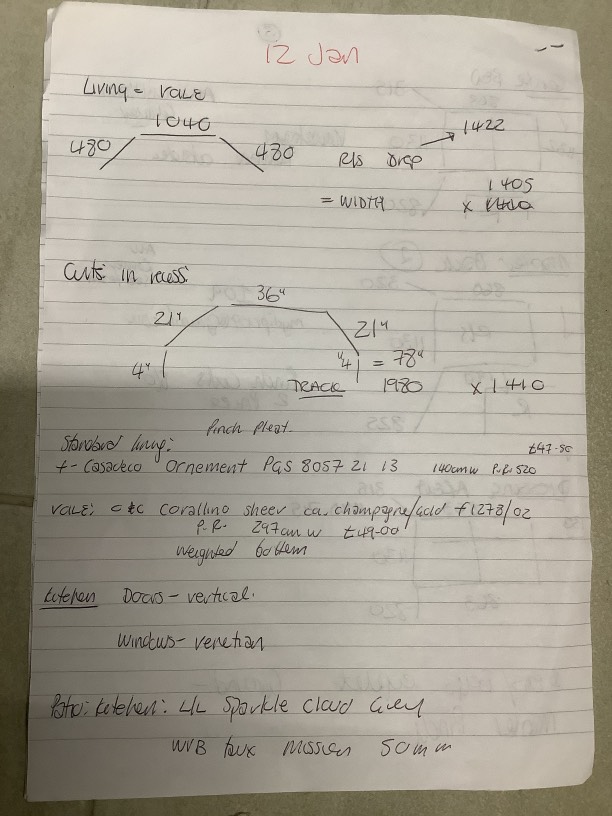 12 Jan
Living = VOILE
1040
480
480
R/S Drop
1422
= WIDTH
1405
x
Curts in recess:
36"
21"
21"
4"
4"
= 78"
TRACK 1980 x 1410
Pinch Pleat.
Standard lining:
£47-50
f - Casadeco Ornement PGS 8057 21 13 140cm w P.R. 520
VOILE: c+c corallino sheer ca. champagne/gold f1278/02
P.R. 297cm w £49-00
weighted bottom
Kitchen Doors - vertical.
Windows - venetian
Patio: Kitchen: L/L Sparkle Cloud Grey
WVB faux Mission 50mm